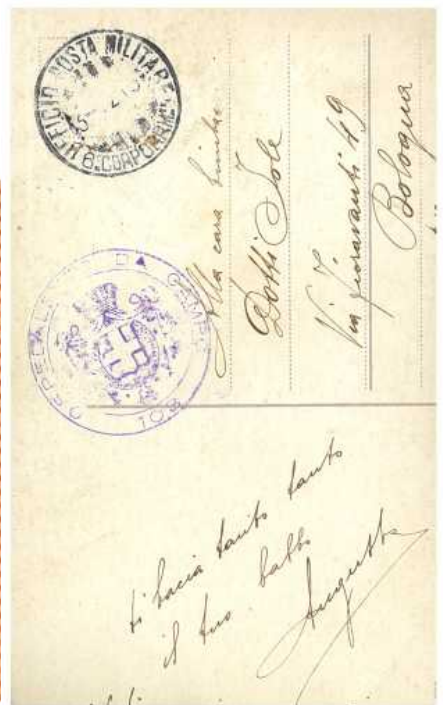 UFFICIO POSTA MILITARE
OSPEDALE DA CAMPO
108
Alla cara bimba
Dotti Iole
Via Fioravanti 49
Bologna
ti bacia tanto tanto
il tuo babbo
Augusto